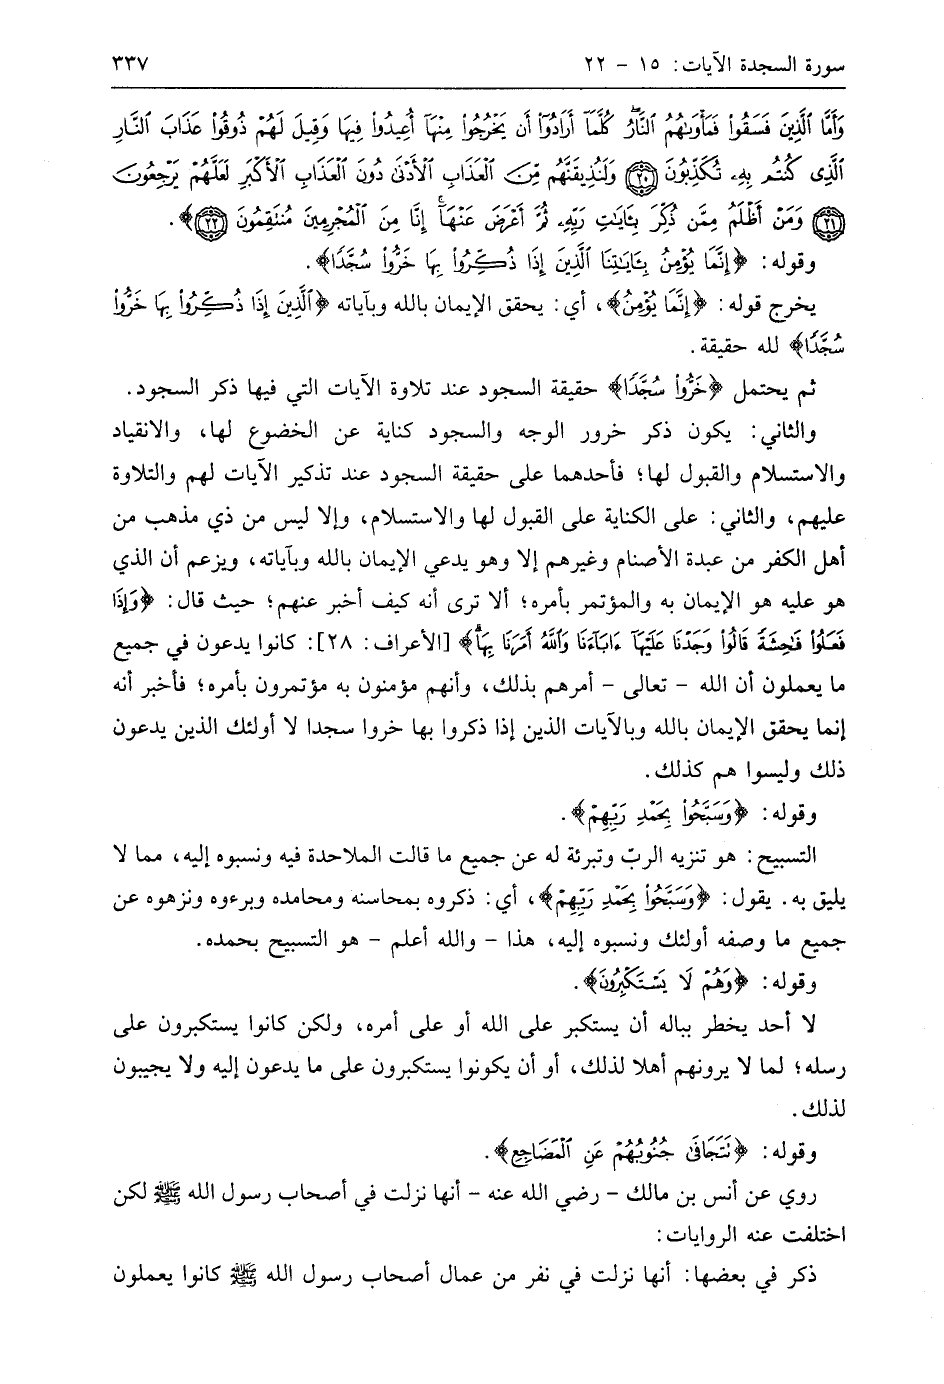 سورة السجدة الآيات: ١٥ - ٢٢ ٣٣٧
وَأَمَّا ٱلَّذِينَ فَسَقُوا۟ فَمَأْوَىٰهُمُ ٱلنَّارُ كُلَّمَآ أَرَادُوٓا۟ أَن يَخْرُجُوا۟ مِنْهَآ أُعِيدُوا۟ فِيهَا وَقِيلَ لَهُمْ ذُوقُوا۟ عَذَابَ ٱلنَّارِ
ٱلَّذِى كُنتُم بِهِۦ تُكَذِّبُونَ ﴿٢٠﴾ وَلَنُذِيقَنَّهُم مِّنَ ٱلْعَذَابِ ٱلْأَدْنَىٰ دُونَ ٱلْعَذَابِ ٱلْأَكْبَرِ لَعَلَّهُمْ يَرْجِعُونَ
﴿٢١﴾ وَمَنْ أَظْلَمُ مِمَّن ذُكِّرَ بِـَٔايَٰتِ رَبِّهِۦ ثُمَّ أَعْرَضَ عَنْهَآ إِنَّا مِنَ ٱلْمُجْرِمِينَ مُنتَقِمُونَ ﴿٢٢﴾﴾.
وقوله: ﴿إِنَّمَا يُؤْمِنُ بِـَٔايَٰتِنَا ٱلَّذِينَ إِذَا ذُكِّرُوا۟ بِهَا خَرُّوا۟ سُجَّدًا﴾.
يخرج قوله: ﴿إِنَّمَا يُؤْمِنُ﴾، أي: يحقق الإيمان بالله وبآياته ﴿ٱلَّذِينَ إِذَا ذُكِّرُوا۟ بِهَا خَرُّوا۟
سُجَّدًا﴾ لله حقيقة.
ثم يحتمل ﴿خَرُّوا۟ سُجَّدًا﴾ حقيقة السجود عند تلاوة الآيات التي فيها ذكر السجود.
والثاني: يكون ذكر خرور الوجه والسجود كناية عن الخضوع لها، والانقياد
والاستسلام والقبول لها؛ فأحدهما على حقيقة السجود عند تذكير الآيات لهم والتلاوة
عليهم، والثاني: على الكناية على القبول لها والاستسلام، وإلا ليس من ذي مذهب من
أهل الكفر من عبدة الأصنام وغيرهم إلا وهو يدعي الإيمان بالله وبآياته، ويزعم أن الذي
هو عليه هو الإيمان به والمؤتمر بأمره؛ ألا ترى أنه كيف أخبر عنهم؛ حيث قال: ﴿وَإِذَا
فَعَلُوا۟ فَٰحِشَةً قَالُوا۟ وَجَدْنَا عَلَيْهَآ ءَابَآءَنَا وَٱللَّهُ أَمَرَنَا بِهَا﴾ [الأعراف: ٢٨]: كانوا يدعون في جميع
ما يعملون أن الله - تعالى - أمرهم بذلك، وأنهم مؤمنون به مؤتمرون بأمره؛ فأخبر أنه
إنما يحقق الإيمان بالله وبالآيات الذين إذا ذكروا بها خروا سجدا لا أولئك الذين يدعون
ذلك وليسوا هم كذلك.
وقوله: ﴿وَسَبَّحُوا۟ بِحَمْدِ رَبِّهِمْ﴾.
التسبيح: هو تنزيه الربّ وتبرئة له عن جميع ما قالت الملاحدة فيه ونسبوه إليه، مما لا
يليق به. يقول: ﴿وَسَبَّحُوا۟ بِحَمْدِ رَبِّهِمْ﴾، أي: ذكروه بمحاسنه ومحامده وبرءوه ونزهوه عن
جميع ما وصفه أولئك ونسبوه إليه، هذا - والله أعلم - هو التسبيح بحمده.
وقوله: ﴿وَهُمْ لَا يَسْتَكْبِرُونَ﴾.
لا أحد يخطر بباله أن يستكبر على الله أو على أمره، ولكن كانوا يستكبرون على
رسله؛ لما لا يرونهم أهلا لذلك، أو أن يكونوا يستكبرون على ما يدعون إليه ولا يجيبون
لذلك.
وقوله: ﴿تَتَجَافَىٰ جُنُوبُهُمْ عَنِ ٱلْمَضَاجِعِ﴾.
روي عن أنس بن مالك - رضي الله عنه - أنها نزلت في أصحاب رسول الله ﷺ لكن
اختلفت عنه الروايات:
ذكر في بعضها: أنها نزلت في نفر من عمال أصحاب رسول الله ﷺ كانوا يعملون